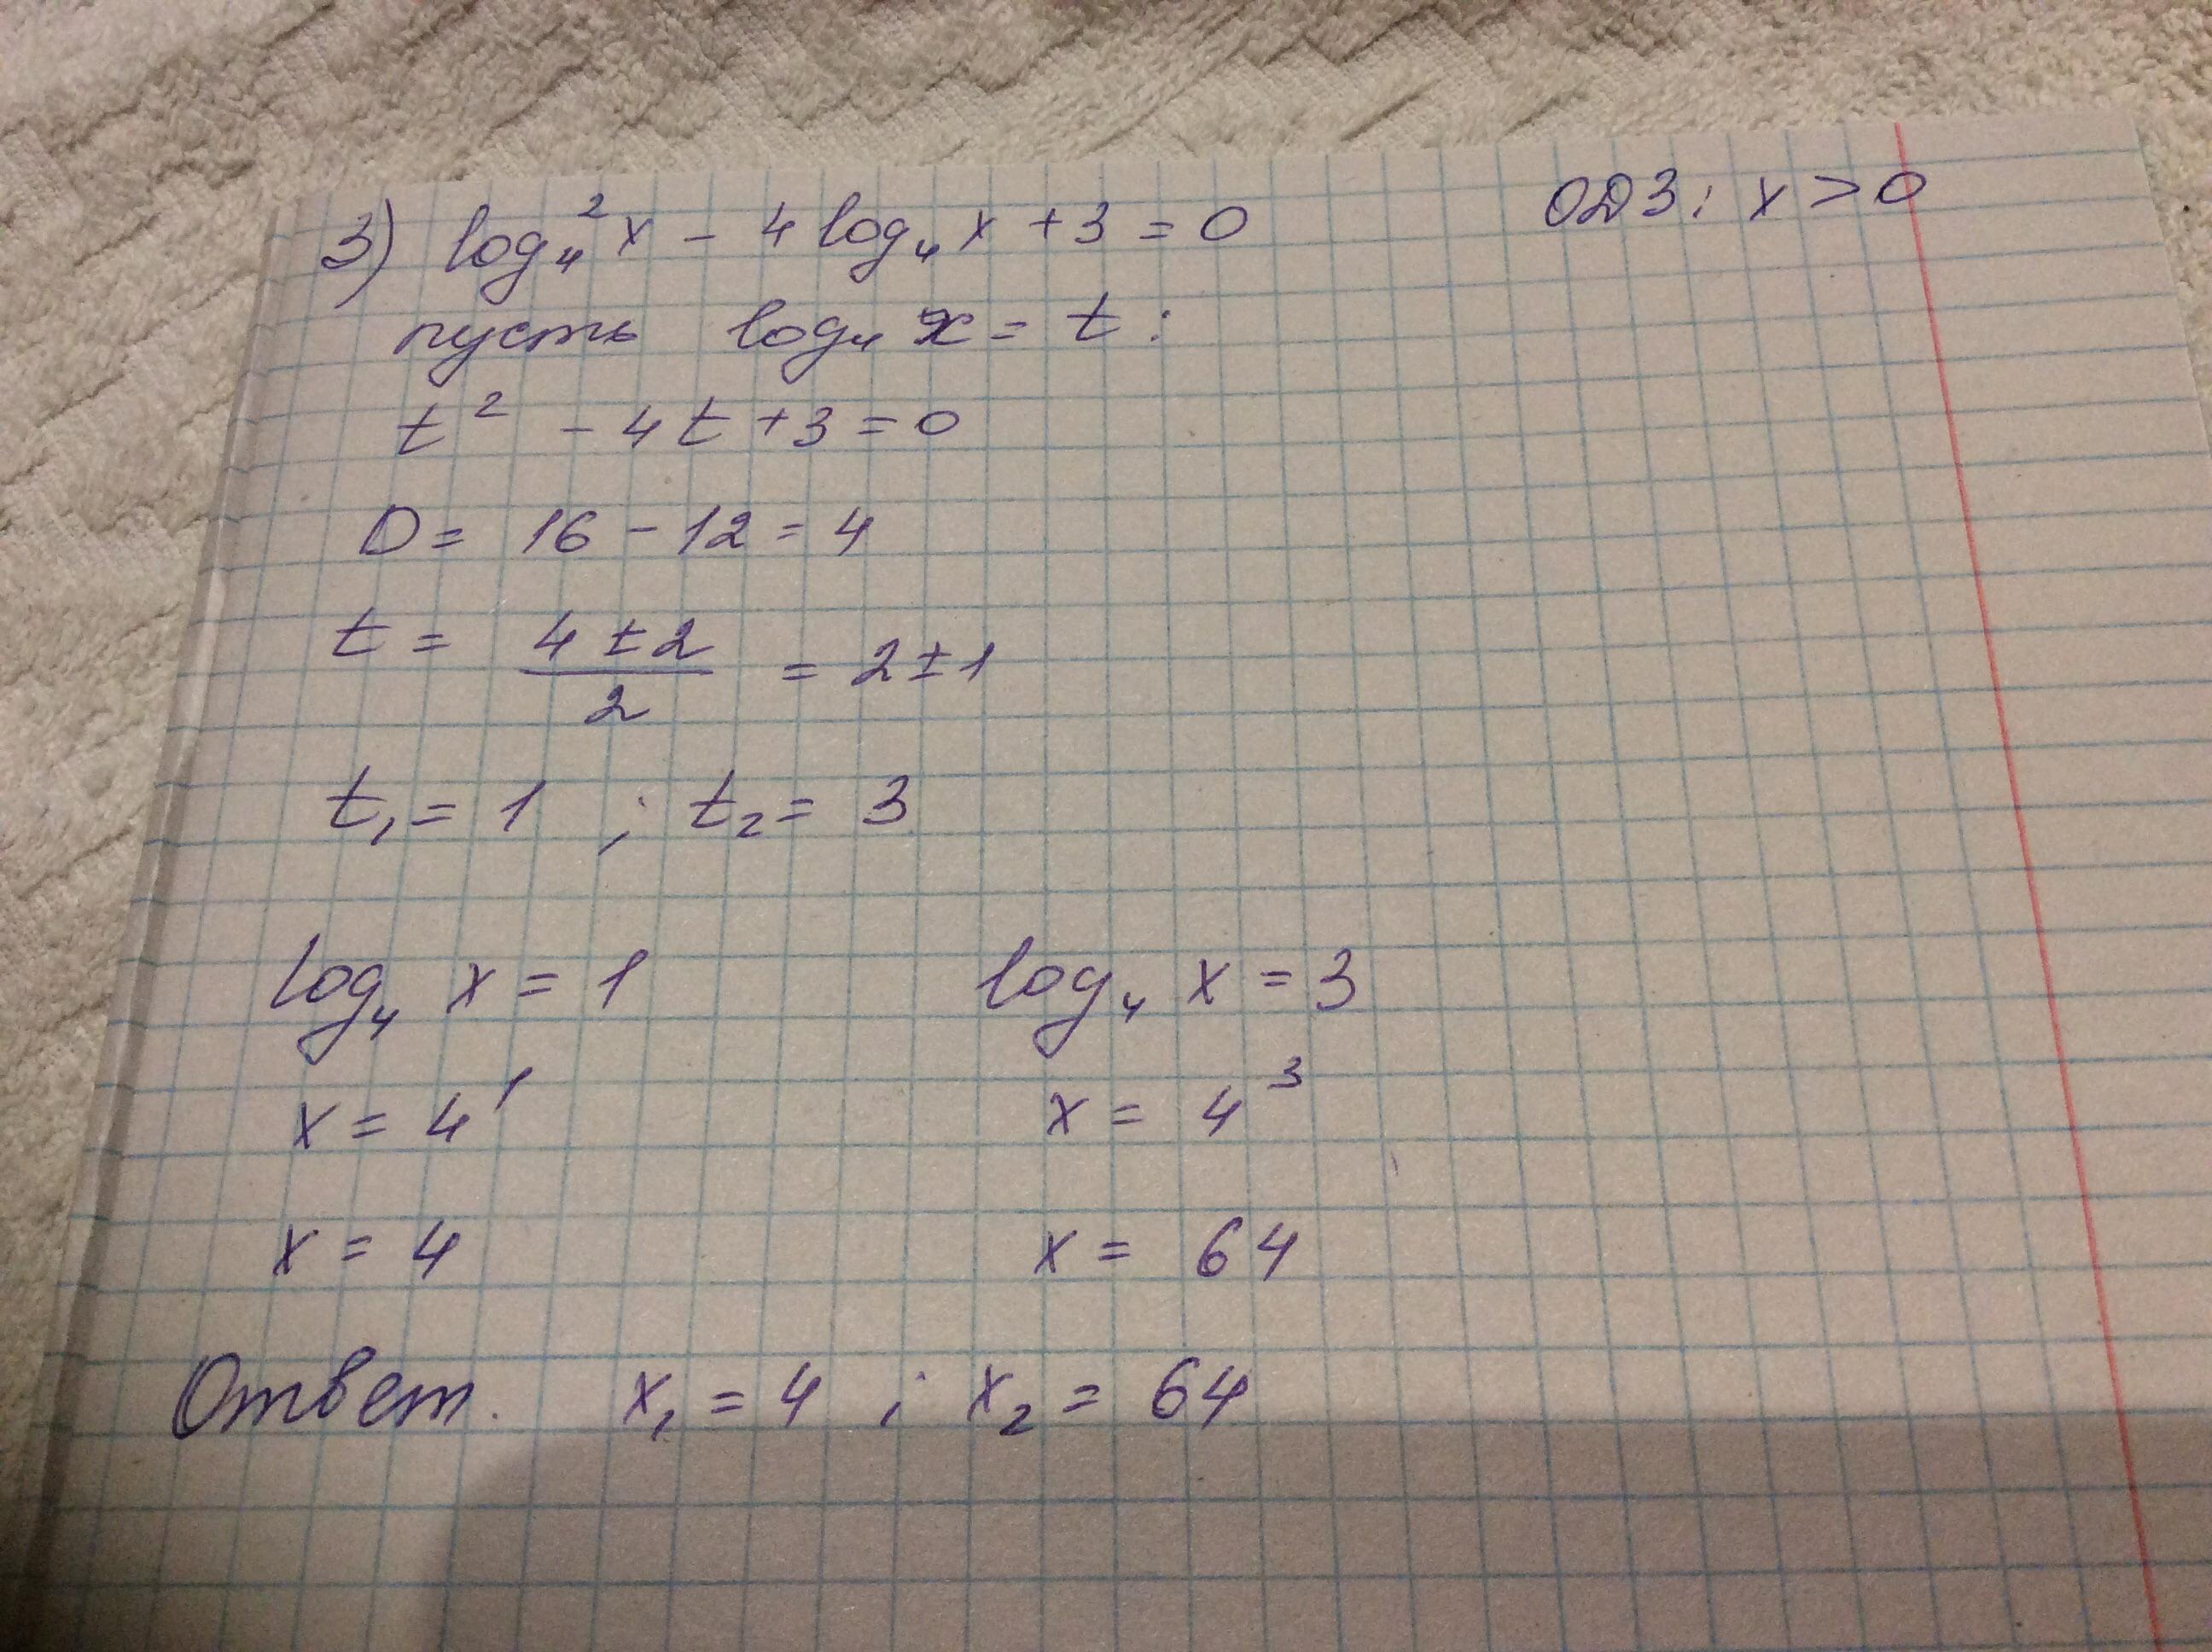 3) log₄²x - 4 log₄x + 3 = 0
ОДЗ: x > 0
пусть log₄ x = t:
t² - 4t + 3 = 0
D = 16 - 12 = 4
t = (4 ± 2)/2 = 2 ± 1
t₁ = 1 ; t₂ = 3
log₄ x = 1 log₄ x = 3
x = 4¹ x = 4³
x = 4 x = 64
Ответ. x₁ = 4 ; x₂ = 64